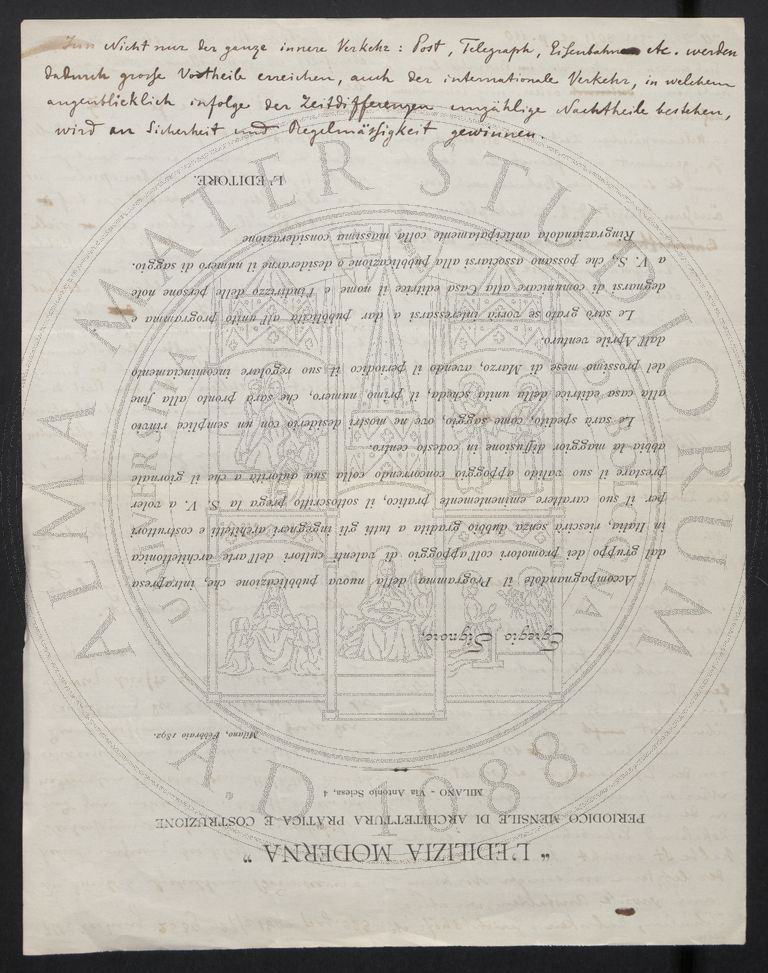 Nicht nur der ganze innere Verkehr: Post, Telegraph, Eisenbahnen etc. werden
dadurch grosse Vortheile erreichen, auch der internationale Verkehr, in welchem
augenblicklich infolge der Zeitdifferenzen unzählige Nachtheile bestehen,
wird an Sicherheit und Regelmässigkeit gewinnen.
"L'EDILIZIA MODERNA"
PERIODICO MENSILE DI ARCHITETTURA PRATICA E COSTRUZIONE
MILANO - Via Antonio Sciesa, 4
Milano, Febbraio 1892.
Egregio Signore,
Accompagnandole il Programma della nuova pubblicazione che, intrapresa
dal gruppo dei promotori coll'appoggio di valenti cultori dell'arte architettonica
in Italia, riescirà senza dubbio gradita a tutti gli ingegneri architetti e costruttori
per il suo carattere eminentemente pratico, il sottoscritto prega la S. V. a voler
prestare il suo valido appoggio concorrendo colla sua autorità a che il giornale
abbia la maggior diffusione in codesto centro.
Le sarà spedito, come saggio, ove ne mostri desiderio con un semplice rinvio
alla casa editrice della unita scheda, il primo numero, che sarà pronto alla fine
del prossimo mese di Marzo, avendo il periodico il suo regolare incominciamento
dall'Aprile venturo.
Le sarò grato se vorrà interessarsi a dar pubblicità all'unito programma e
degnarsi di comunicare alla Casa editrice il nome e l'indirizzo delle persone note
a V. S. che possano associarsi alla pubblicazione o desiderarne il numero di saggio.
Ringraziandola anticipatamente colla massima considerazione
L'EDITORE.
ALMA MATER STUDIORUM
A.D. 1088